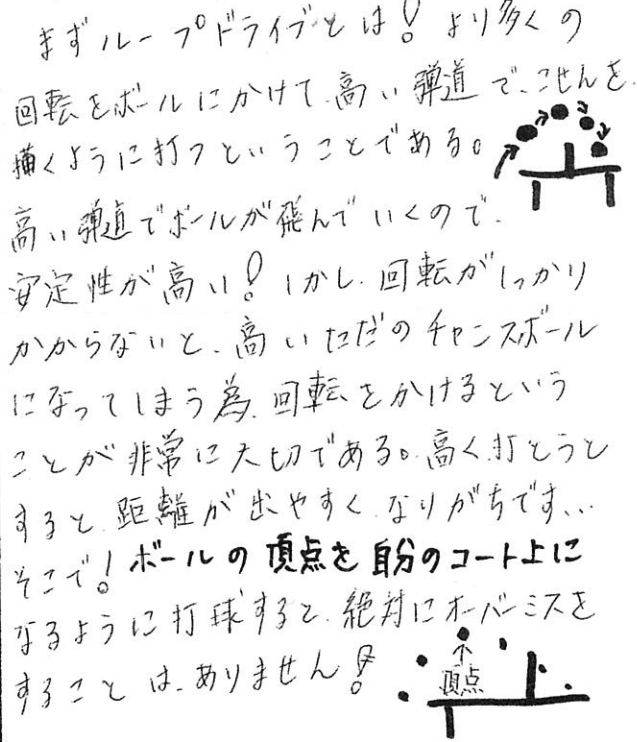 まずループドライブとは！より多くの
回転をボールにかけて、高い弾道で、こせんを、
描くように打つということである。
高い弾道でボールが飛んでいくので、
安定性が高い！しかし、回転がしっかり
かからないと、高いただのチャンスボール
になってしまう為、回転をかけるという
ことが非常に大切である。高く打とうと
すると、距離が出やすくなりがちです…
そこで！ボールの頂点を自分のコート上に
なるように打球すると、絶対にオーバーミスを
することは、ありません！
頂点